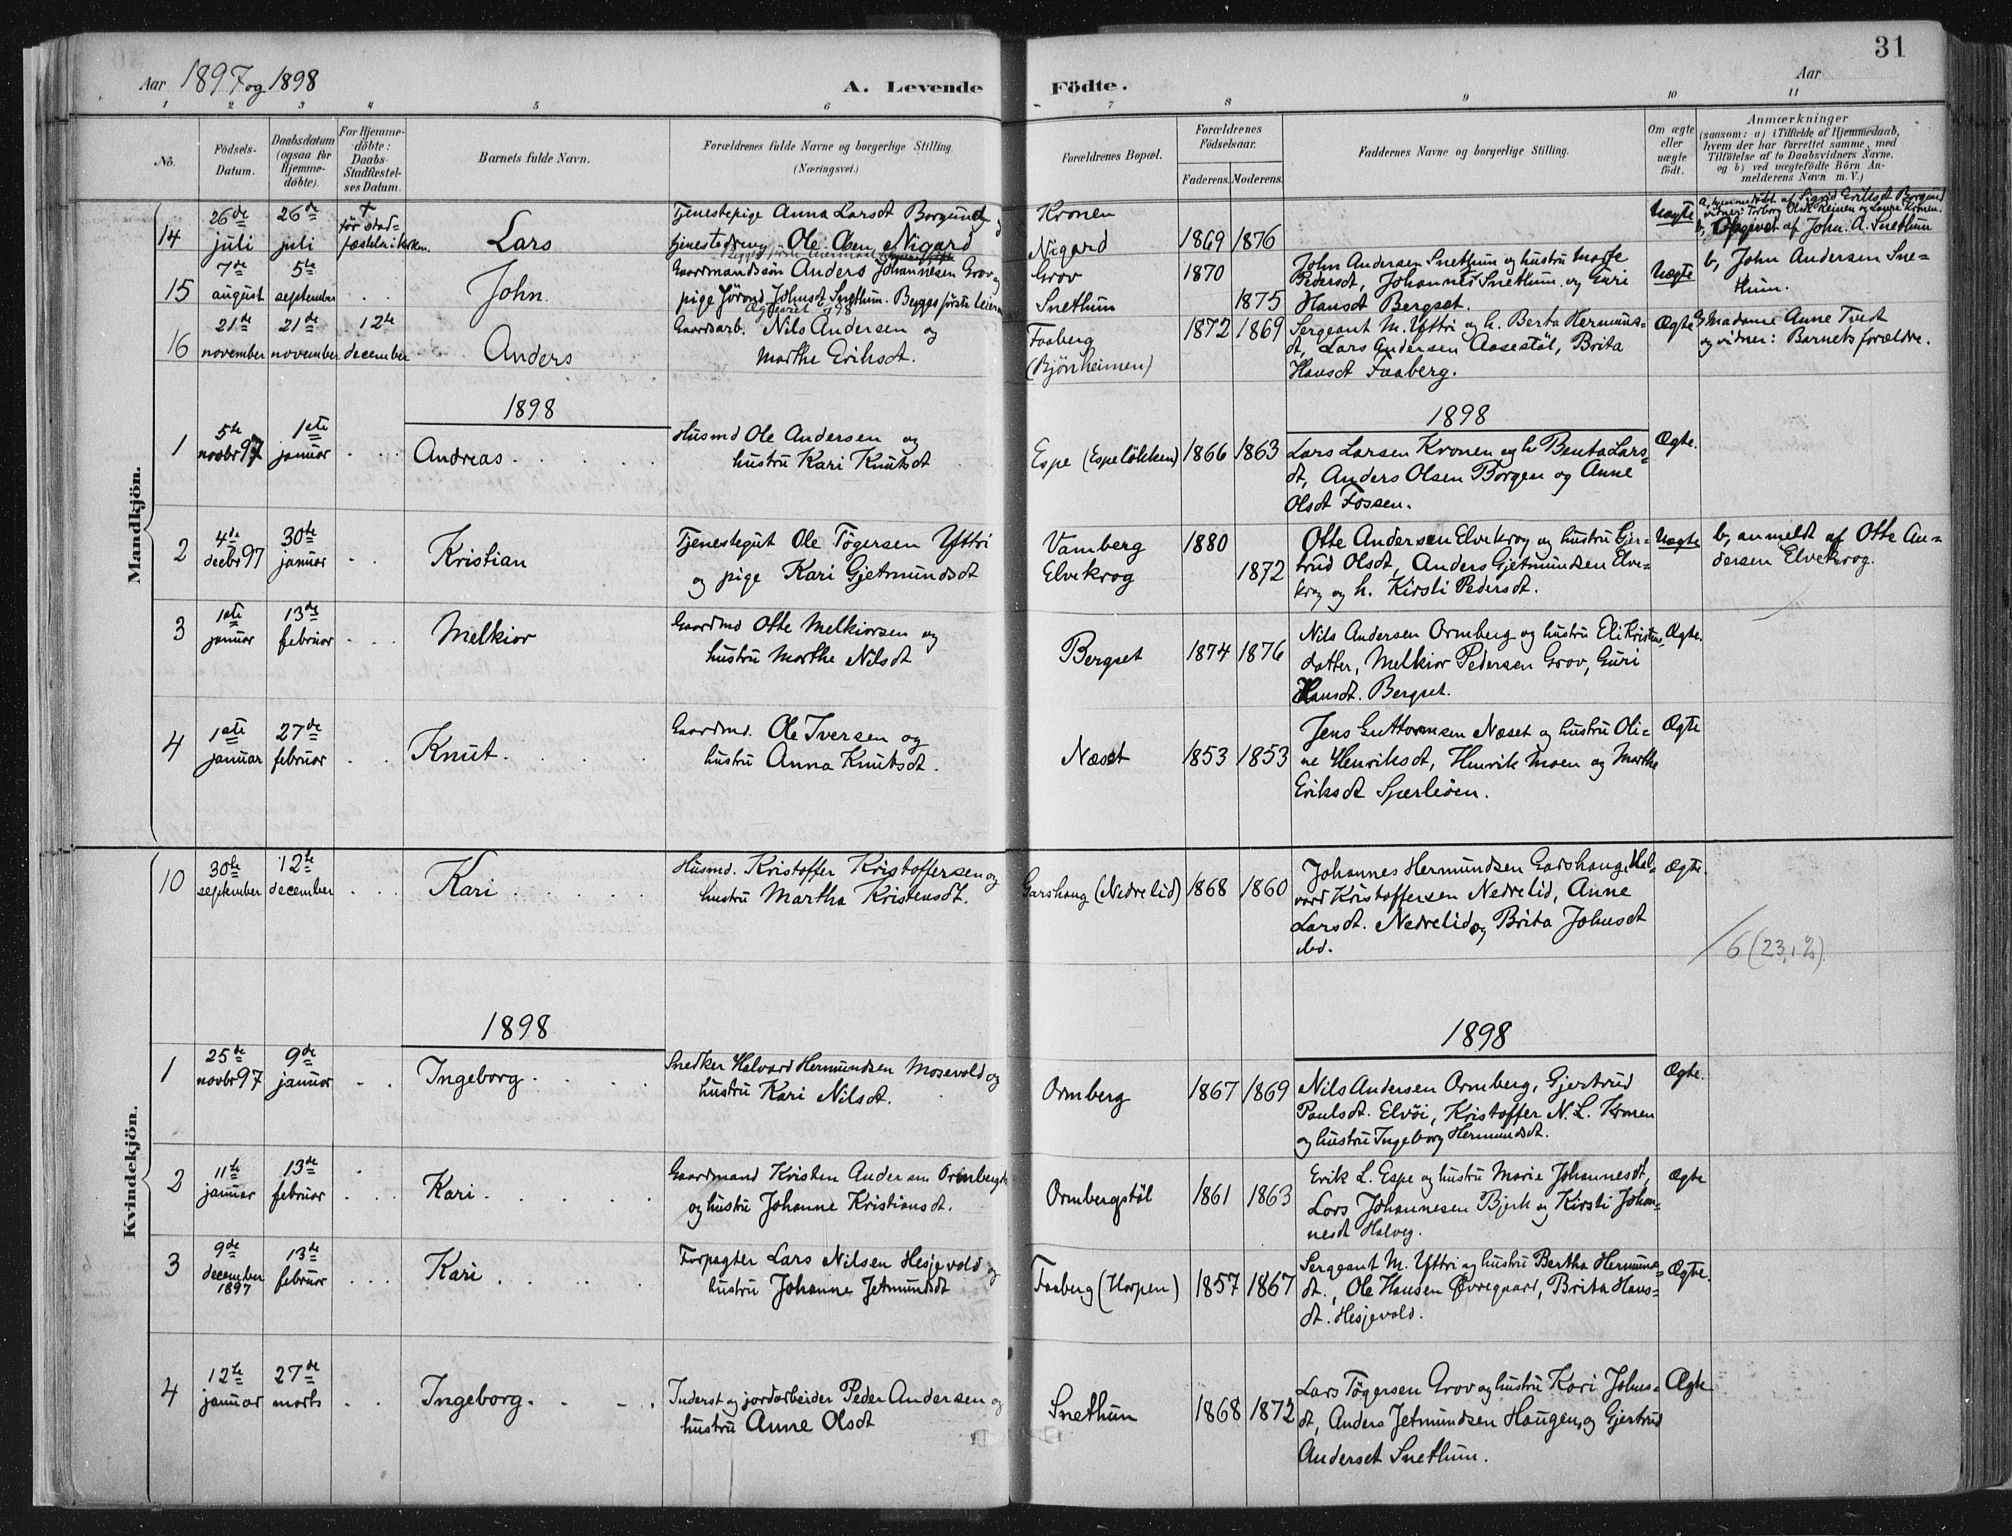 31
Aar 1897 og 1898
A. Levende Födte.
Aar
1 2 3 4 5 6 7 8 9 10 11
No.
Födsels-Datum.
Daabsdatum (ogsaa for Hjemmedöbte).
For Hjemmedöbte: Daabs-Stadfæstelses Datum.
Barnets fulde Navn.
Forældrenes fulde Navne og borgerlige Stilling. (Næringsvei.)
Forældrenes Bopæl.
Forældrenes Födselsaar.
Faderens. Moderens.
Faddernes Navne og borgerlige Stilling.
Om ægte eller uægte födt.
Anmærkninger
(saasom: a) i Tilfælde af Hjemmedaab, hvem der har forrettet samme, med Tilföielse af to Daabsvidners Navne, og b) ved uægtefödte Börn Anmelderens Navn m. V.)
Mandkjön.
14 26de juli 26de juli + för stadfæstelse i kirken.
Lars
Tjenestepige Anna Larsdt Borgund og
tjenestedreng Ole Olsen Nigard
Kronen
Nigard 1869 1876
Uægte
a, hjemmedöbt af Sigrid Eriksdt Borgund
vidner: Torborg Olsdt Reinen og Laura Kronen.
b, Opgivet af John. A. Snethun
15 7de august 5te september . .
John.
Gaardmandssön Anders Johannesen Grov og
pige Jörand Johnsdt Snethun. Begges förste leierm
Grov
Snethun 1870 1875
John Andersen Snethun og hustru Marte
Pedersdt, Johannes Snethun og Guri
Hansdt Bergset.
Uægte
b, John Andersen Sne=
thun.
16 21de november 21de november 12te december
Anders
Gaardarb. Nils Andersen og
Marthe Eriksdt.
Faaberg
(Bjönheimen) 1872 1869
Sergeant M. Yttri og h. Berta Hermuns=
dt, Lars Andersen Aasestöl, Brita
Hansdt Faaberg.
Ægte
a, Madame Anne Tvedt
og vidner: Barnets forældre.
1898
1898
1 5te novbr 97 1ste januar . .
Andreas
Husmd Ole Andersen og
hustru Kari Knutsdt
Espe (Espelökken) 1866 1863
Lars Larsen Kronen og h. Benta Lars=
dt, Anders Olsen Borgen og Anne
Olsdt Fossen.
Ægte.
2 4de decbr 97 30te januar . .
Kristian
Tjenestegut Ole Tögersen Yttri
og pige Kari Gjetmundsdt
Vamberg
Elvekrog 1880 1872
Otte Andersen Elvekrog og hustru Gjer=
trud Olsdt, Anders Gjetmundsen Elve=
krog og h. Kirsti Pedersdt.
Uægte
b, anmeldt af Otte An=
dersen Elvekrog.
3 1ste januar 13de februar . .
Melkior
Gaardmd Otte Melkiorsen og
hustru Marthe Nilsdt
Bergset 1874 1876
Nils Andersen Ormberg og hustru Eli Kristens
datter, Melkior Pedersen Grov, Guri
Hansdt. Bergset.
Ægte.
4 1ste januar 27de februar . .
Knut.
Gaardmd. Ole Iversen og
hustru Anna Knutsdt.
Næset 1853 1853
Jens Guttormsen Næset og hustru Oli=
ne Henriksdt, Henrik Moen og Marthe
Eriksdt Sperleöen.
Ægte
Kvindekjön.
10 30te september 12te december . .
Kari
Husmd. Kristoffer Kristoffersen og
hustru Martha Kristensdt.
Garshaug (Nedrelid) 1868 1860
Johannes Hermundsen Garshaug, Hal=
vard Kristoffersen Nedrelid, Anne
Larsdt. Nedrelid og Brita Johnsdt
ibd.
Ægte.
/6 (23,12)
1898
1898
1 25de novbr 97 9de januar . .
Ingeborg
Snedker Halvard Hermundsen Mosevold og
hustru Kari Nilsdt.
Ormberg 1867 1869
Nils Andersen Ormberg, Gjertrud
Paulsdt. Elvöi, Kristoffer N. L. Kronen
og hustru Ingeborg Hermundsdt.
Ægte.
2 11te januar 13de februar . .
Kari
Gaardmand Kristen Andersen Ormbergst.
og hustru Johanne Kristiansdt.
Ormbergstöl 1861 1863
Erik L. Espe og hustru Marie Johannesdt,
Lars Johannesen Bjerk og Kirsti Johan=
nesdt Halveg.
Ægte
3 9de december 1897 13de februar . .
Kari
Forpagter Lars Nilsen Hesjevold og
hustru Johanne Jetmundsdt
Faaberg (Horpen) 1857 1867
Sergeant M. Yttri og hustru Bertha Hermuns=
dt., Ole Hansen Øvregaard, Brita Hans=
dt. Hesjevold.
Ægte.
4 12te januar 27de marts . .
Ingeborg.
Inderst og jordarbeider Peder Andersen og
hustru Anne Olsdt
Snethun 1868 1872
Lars Tögersen Grov og hustru Kari Johns=
dt, Anders Jetmundsen Haugen, og Gjertrud
Andersdt Snethun.
Ægte